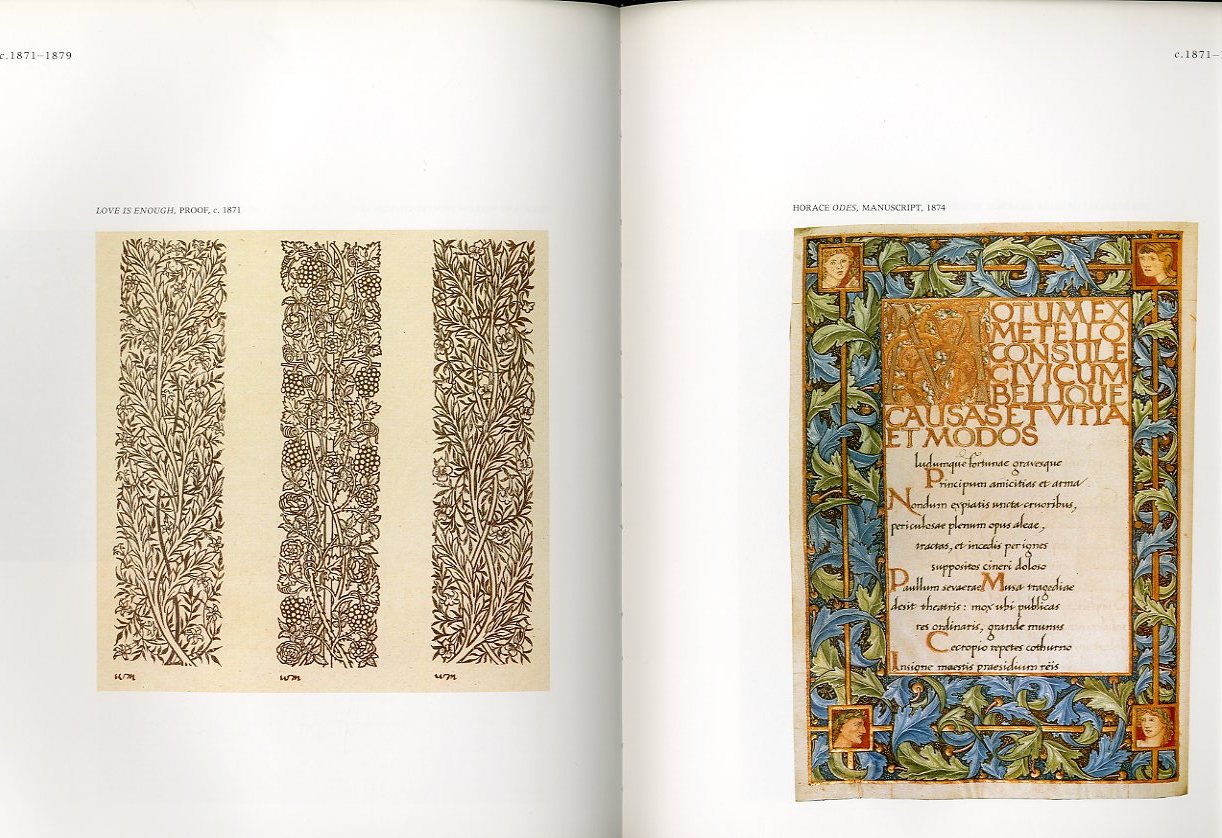 c.1871–1879
LOVE IS ENOUGH, PROOF, c. 1871
wm
wm
wm
c.1871–
HORACE ODES, MANUSCRIPT, 1874
MOTUM EX
METELLO
CONSULE
CIVICUM
BELLIQUE
CAUSAS ET VITIA
ET MODOS
ludumque fortunae gravesque
Principum amicitias et arma
Nondum expiatis uncta cruoribus,
periculosae plenum opus aleae,
tractas, et incedis per ignes
suppositos cineri doloso
Paullum severae Musa tragediae
desit theatris: mox ubi publicas
res ordinaris, grande munus
Cecropio repetes cothurno
Insigne maestis praesidium reis